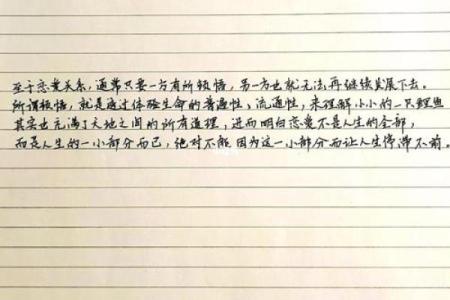 至于恋爱关系，通常只要一方有所领悟，另一方也就无法再继续发展下去。
所谓领悟，就是透过体验生命的普遍性、流通性，来理解小小的一只鲤鱼
其实也充满了天地之间的所有道理，进而明白恋爱不是人生的全部，
而是人生的一小部分而已，绝对不能因为这一小部分而让人生停滞不前。